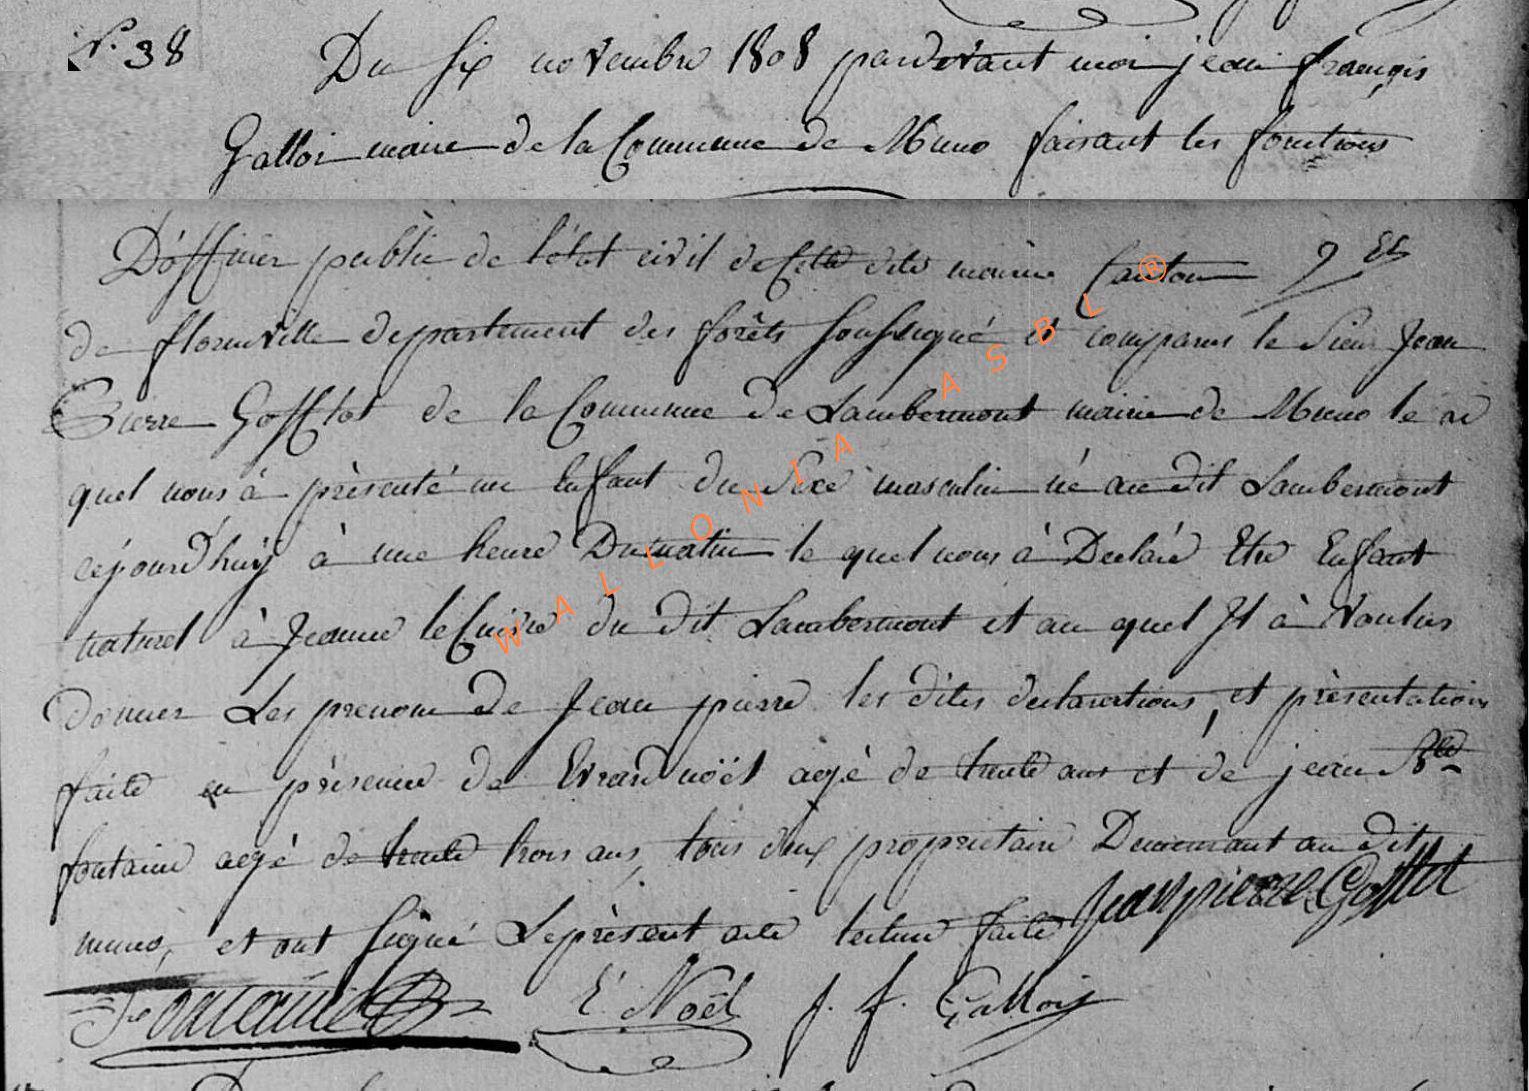 N.° 38
Du six novembre 1808 pardevant moi jean françois
Galloi maire de la Commune de Muno faisant les fonctions
D'officier public de l'état civil de Cette dite mairie Canton
de florenville departement des forêts soussigné est comparus le Sieur Jean
Pierre Gofflot de la Commune de Lambermont mairie de Muno le
quel nous à présenté un Enfant du Sexe masculin né au dit Lambermont
cejourd'huÿ à une heure Du matin le quel nous à Declaré Etre Enfant
naturel à Jeanne le Cuivre du dit Lambermont et au quel Il à Voulus
donner Les prenom de Jean pierre les dites declarations, et présentation
faite en présence de Evrard noël agé de trente ans et de jean Bte
fontaine agé de trente trois ans, tous deux propriétaire Demeurant au dit
muno, et ont signé Le présent acte lecture faite Jean pierre Gofflot
Fontaine E. Noël J. f. Gallois
WALLONIA ASBL ®